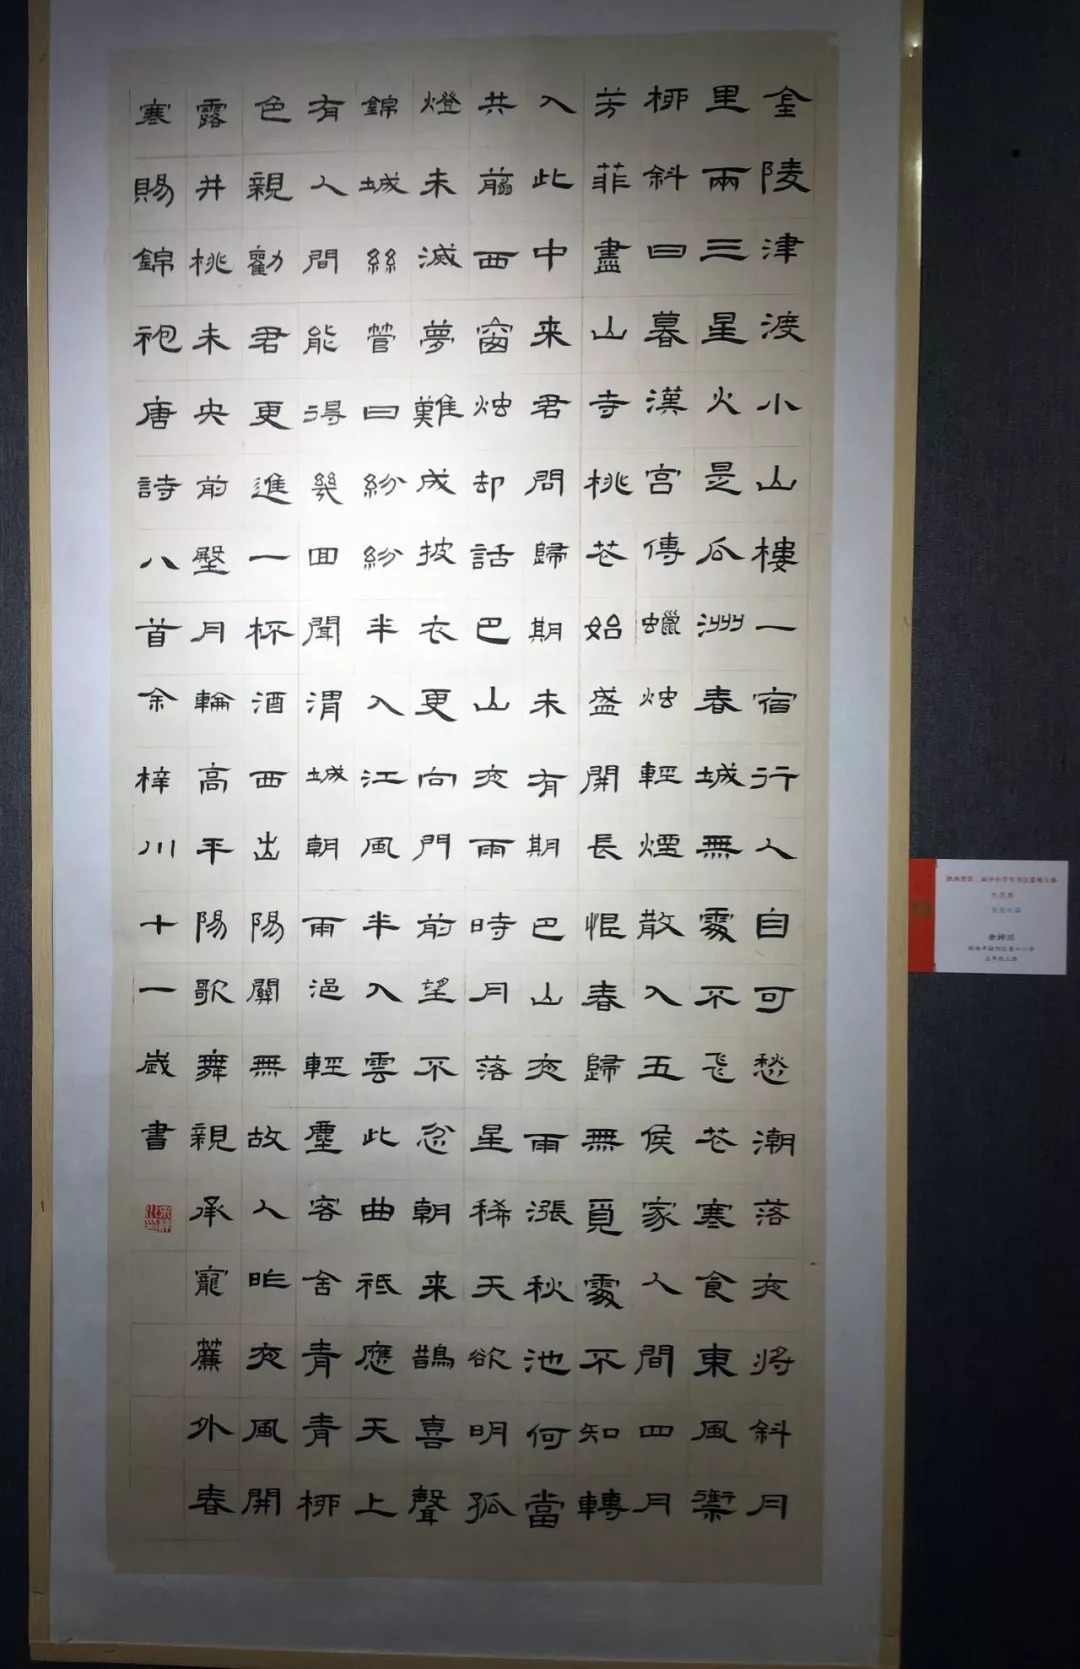 金陵津渡小山樓一宿行人自可愁潮落夜将斜月
里兩三星火是瓜洲春城無處不飛花寒食東風御
柳斜日暮漢宮傳蠟烛輕煙散入五侯家人間四月
芳菲盡山寺桃花始盛開長恨春歸無覓處不知轉
入此中来君問歸期未有期巴山夜雨漲秋池何當
共翦西窗烛却話巴山夜雨時月落星稀天欲明孤
燈未滅夢難成披衣更向門前望不忿朝来鵲喜聲
錦城絲管日紛紛半入江風半入雲此曲祗應天上
有人間能得幾回聞渭城朝雨浥輕塵客舍青青柳
色親勸君更進一杯酒西出陽關無故人昨夜風開
露井桃未央前殿月輪高平陽歌舞親承寵簾外春
寒賜錦袍唐詩八首余梓川十一歲書
余梓川